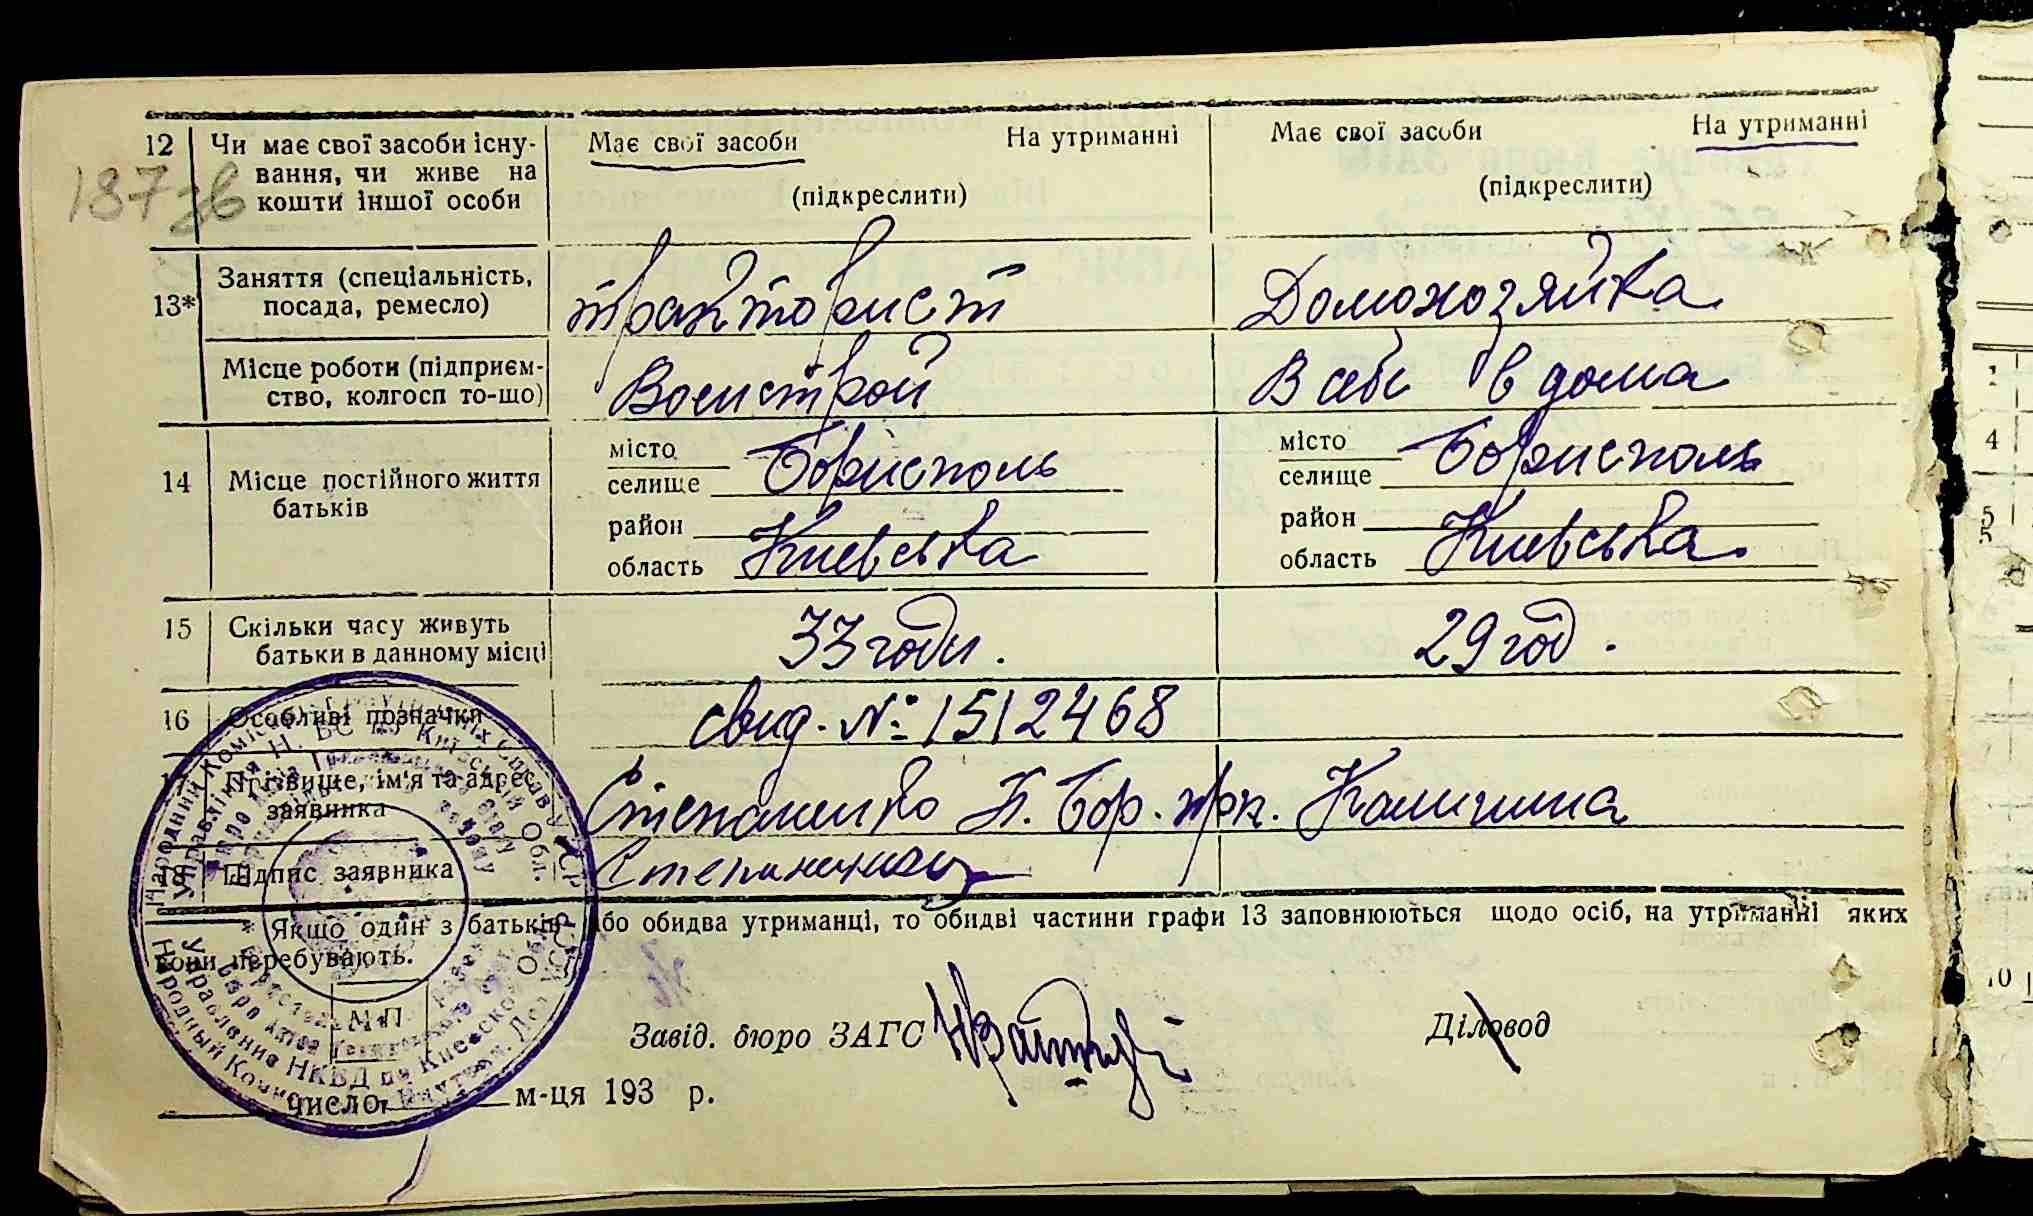 187 зв
12 Чи має свої засоби існу-
вання, чи живе на
кошти іншої особи
Має свої засоби На утриманні
(підкреслити)
Має свої засоби На утриманні
(підкреслити)
13* Заняття (спеціальність,
посада, ремесло)
тракторист
Домохозяйка
Місце роботи (підприєм-
ство, колгосп то-що)
Воєнстрой
В себе в дома
14 Місце постійного життя
батьків
місто
селище Бориспіоль
район
область Киевська
місто
селище Борисполь
район
область Киевська.
15 Скільки часу живуть
батьки в данному місці
33 годи.
29 год.
16 Особливі позначки
свид. № 1512468
17 Прізвище, ім'я та адреса
заявника
Степаненко К. Бор. Калинина
18 Підпис заявника
Якщо один з батьків або обидва утриманці, то обидві частини графи 13 заповнюються щодо осіб, на утриманні яких
вони перебувають.
М П
Завід. бюро ЗАГС
Діловод
число м-ця 193 р.
Народний Комісаріат Внутрішніх Справ УСРР
Управління НКВД по Киевской Обл.
4
5
10